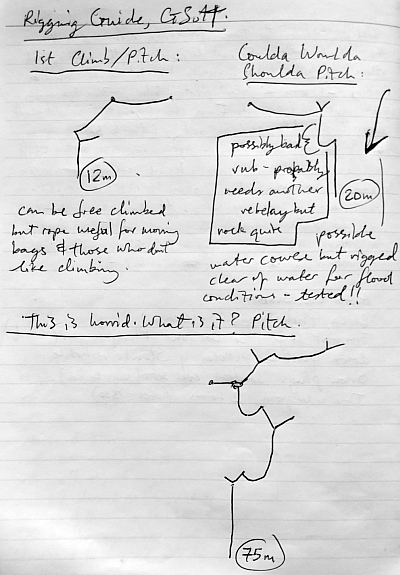 Rigging Guide, GSOH.
1st Climb/Pitch :
Coulda Woulda
Shoulda Pitch :
12m
possibly bad
rub - probably
needs another
rebelay but
rock quite
20m
can be free climbed
but rope useful for moving
bags & those who don't
like climbing.
possible
water course but rigged
clear of water for flood
conditions - tested!!
This is horrid. What is it? Pitch.
75m